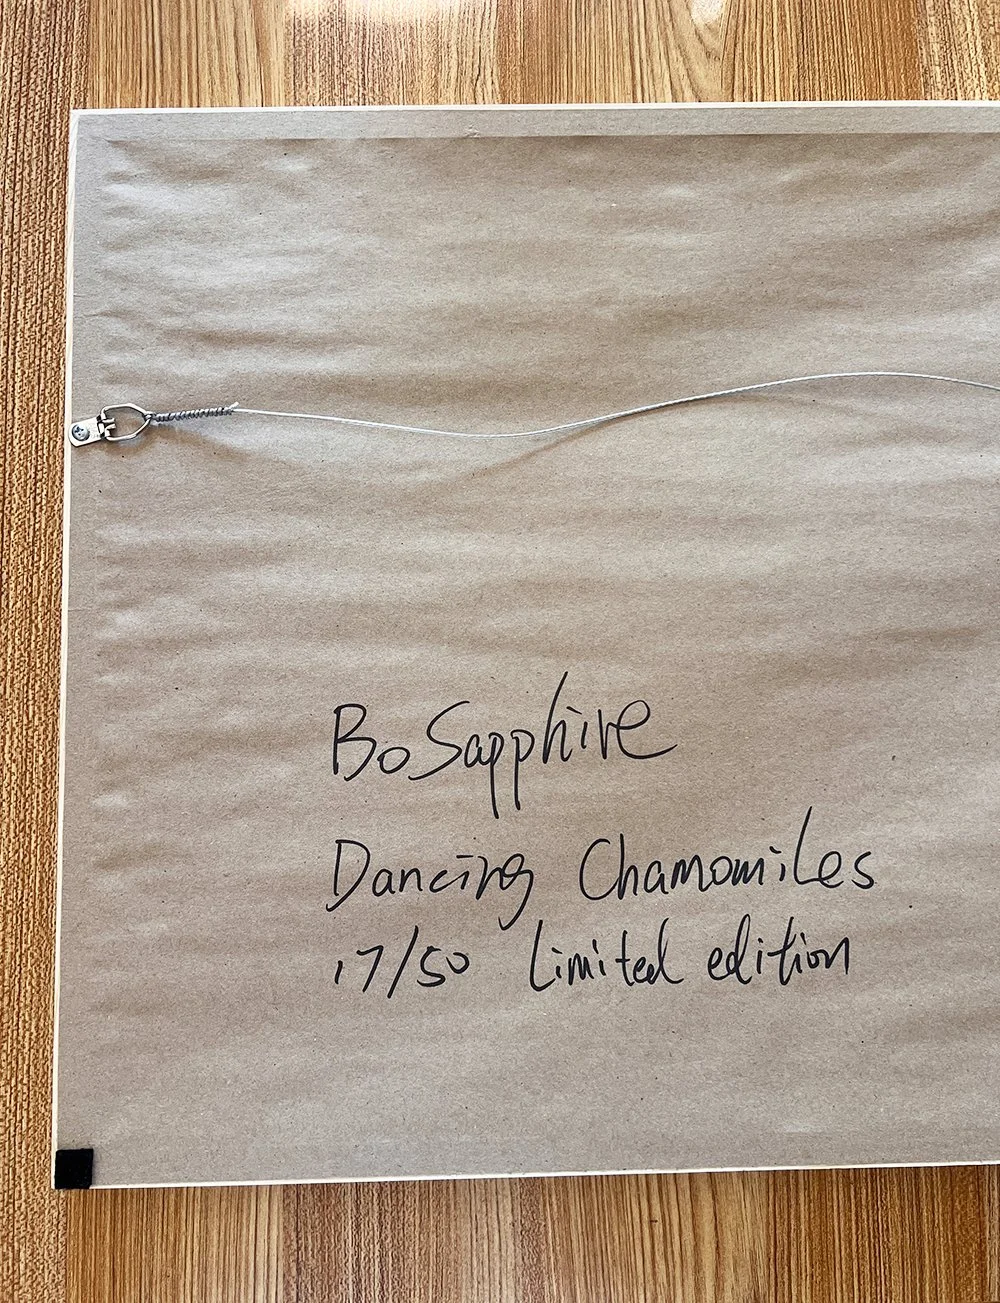 BoSapphire
Dancing Chamomiles
17/50 Limited edition